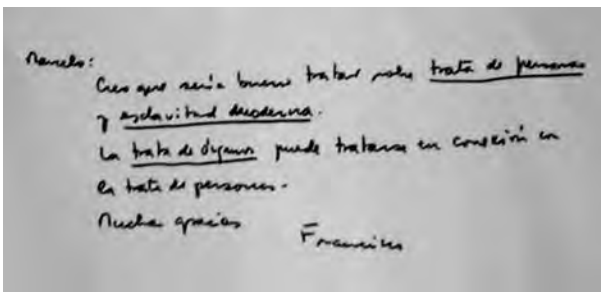 Marcelo:
Creo que sería bueno tratar sobre trata de personas
y esclavitud moderna.
La trata de órganos puede tratarse en conexión con
la trata de personas.
Muchas gracias
Francisco